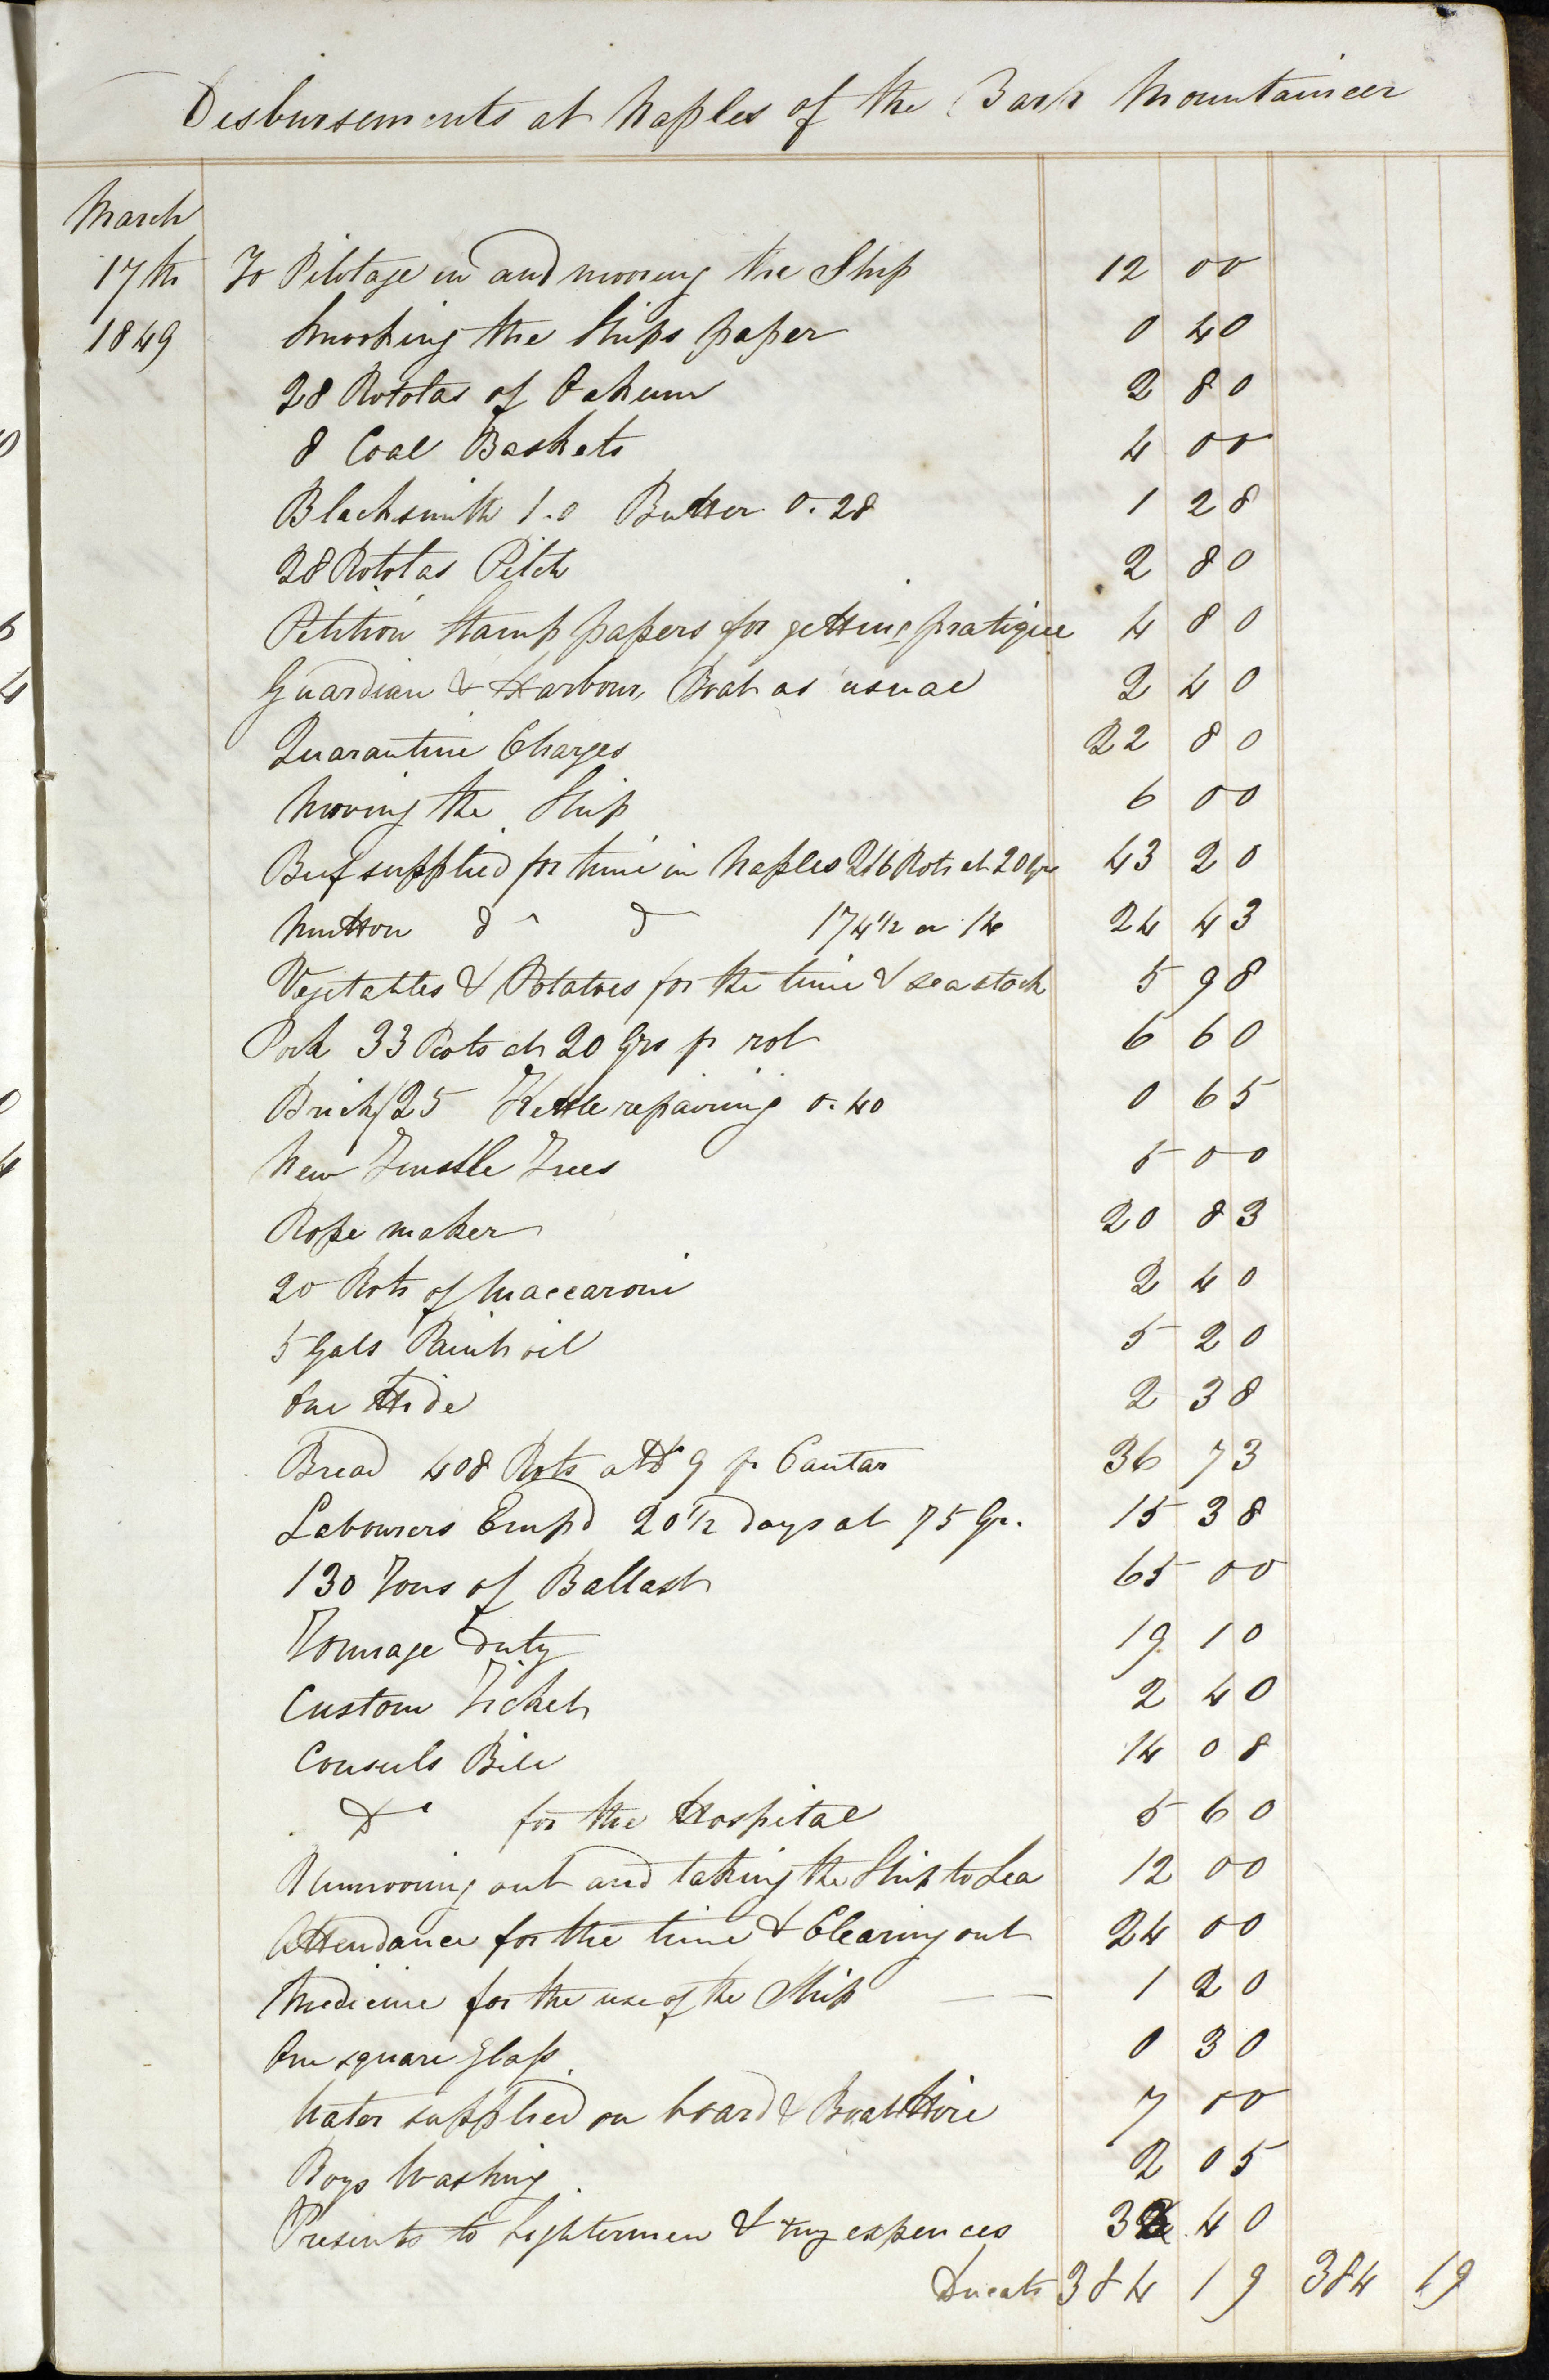 Disbursements at Naples of the Bark Mountaineer
March
17th To Pilotage in and mooring the Ship 12 00
1849 Smoking the Ships paper 0 40
28 Rototas of Oakum 2 80
8 Coal Baskets 4 00
Blacksmith 1.0 Butter 0.28 1 28
28 Rototas Pitch 2 80
Petition Stamp papers for getting pratique 4 80
Guardian & Harbour Boat as usual 2 40
Quarantine Charges 22 80
Mooring the Ship 6 00
Beef supplied for time in Naples 216 Rots at 20 Grs 43 20
Mutton do do 174 1/2 a 14 24 43
Vegetables & Potatoes for the time & sea stock 5 98
Pork 33 Rots at 20 Grs p rot 6 60
Brick/25 Kettle repairing 0.40 0 65
New Trustle Trees 5 00
Rope maker 20 83
20 Rots of Maccaroni 2 40
5 Gals Paint oil 5 20
One Hide 2 38
Bread 408 Rots at D 9 p Cantar 36 73
Labourers Empd 20 1/2 days at 75 Gr. 15 38
130 Tons of Ballast 65 00
Tonnage Duty 19 10
Custom Ticket 2 40
Consuls Bill 14 08
Do for the Hospital 5 60
Unmooring out and taking the Ship to Sea 12 00
Attendance for the time & Clearing out 24 00
Medicine for the use of the Ship — — 1 20
One square Glass 0 30
Water supplied on board & Boat Hire 7 00
Boys Washing 2 05
Presents to Lightermen & my expences 3 40
Ducats 384 19 384 19